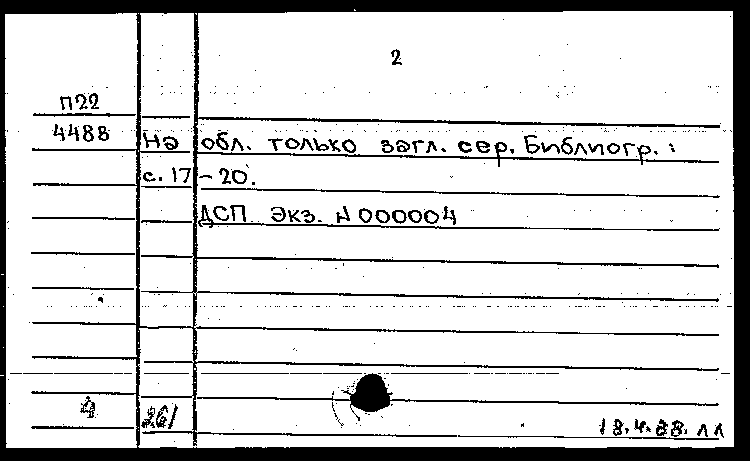 2
П22
4488 На обл. только загл. сер. Библиогр. :
с. 17 - 20.
ДСП Экз. N 000004
4 261
18.4.88. лл